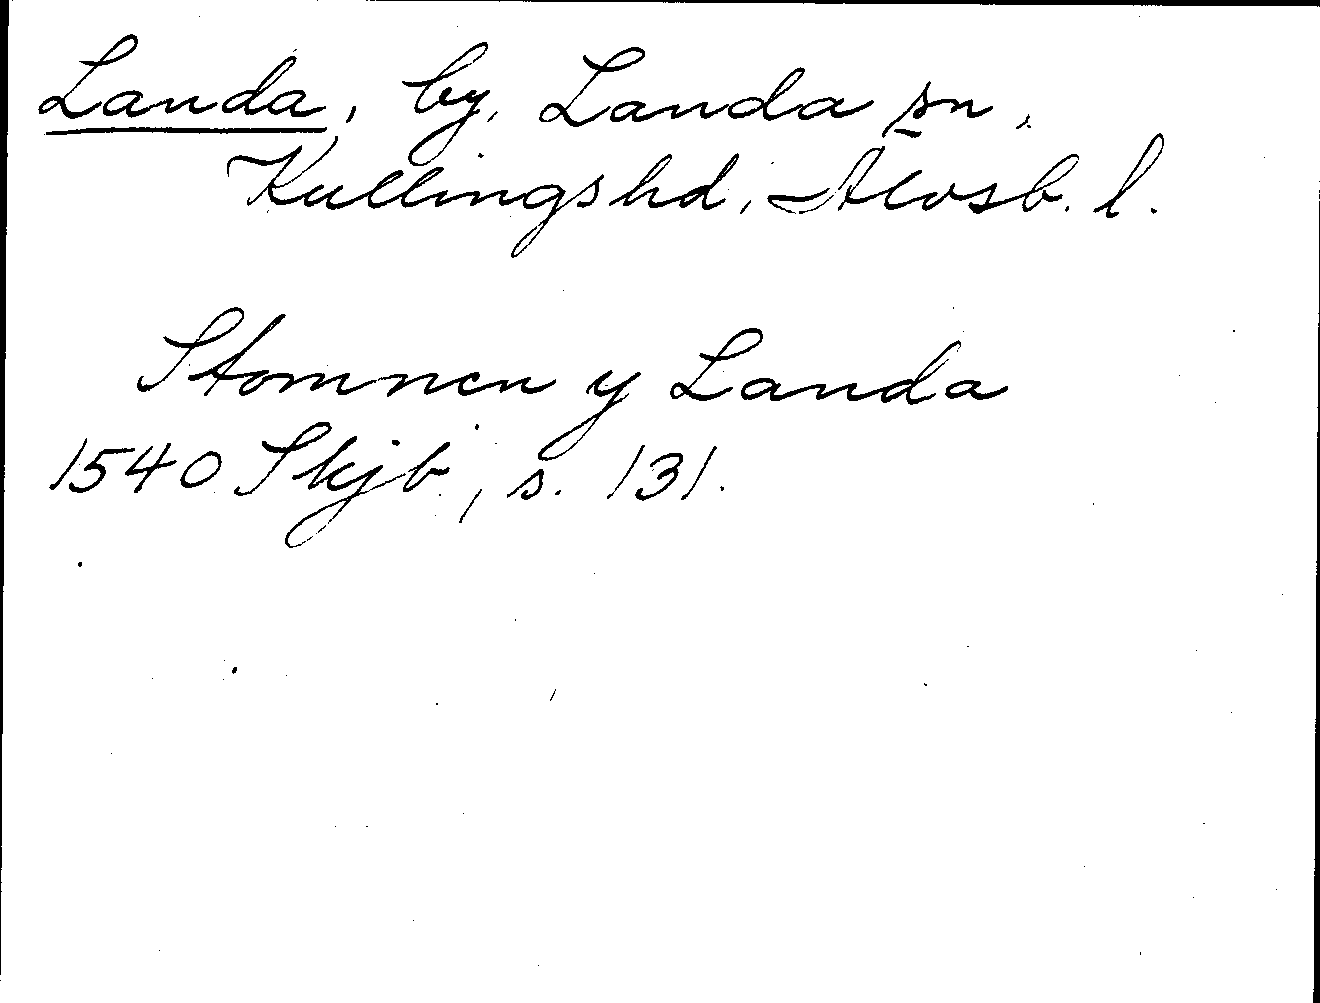 Landa, by, Landa sn,
Kullings hd, Älvsb. l.
Stomnen y Landa
1540 Skjb, s. 131.